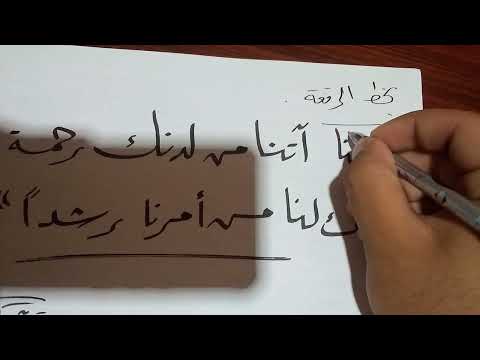 بخط الرقعة .
آتنا من لدنك رحمة
لنا من أمرنا رشداً "